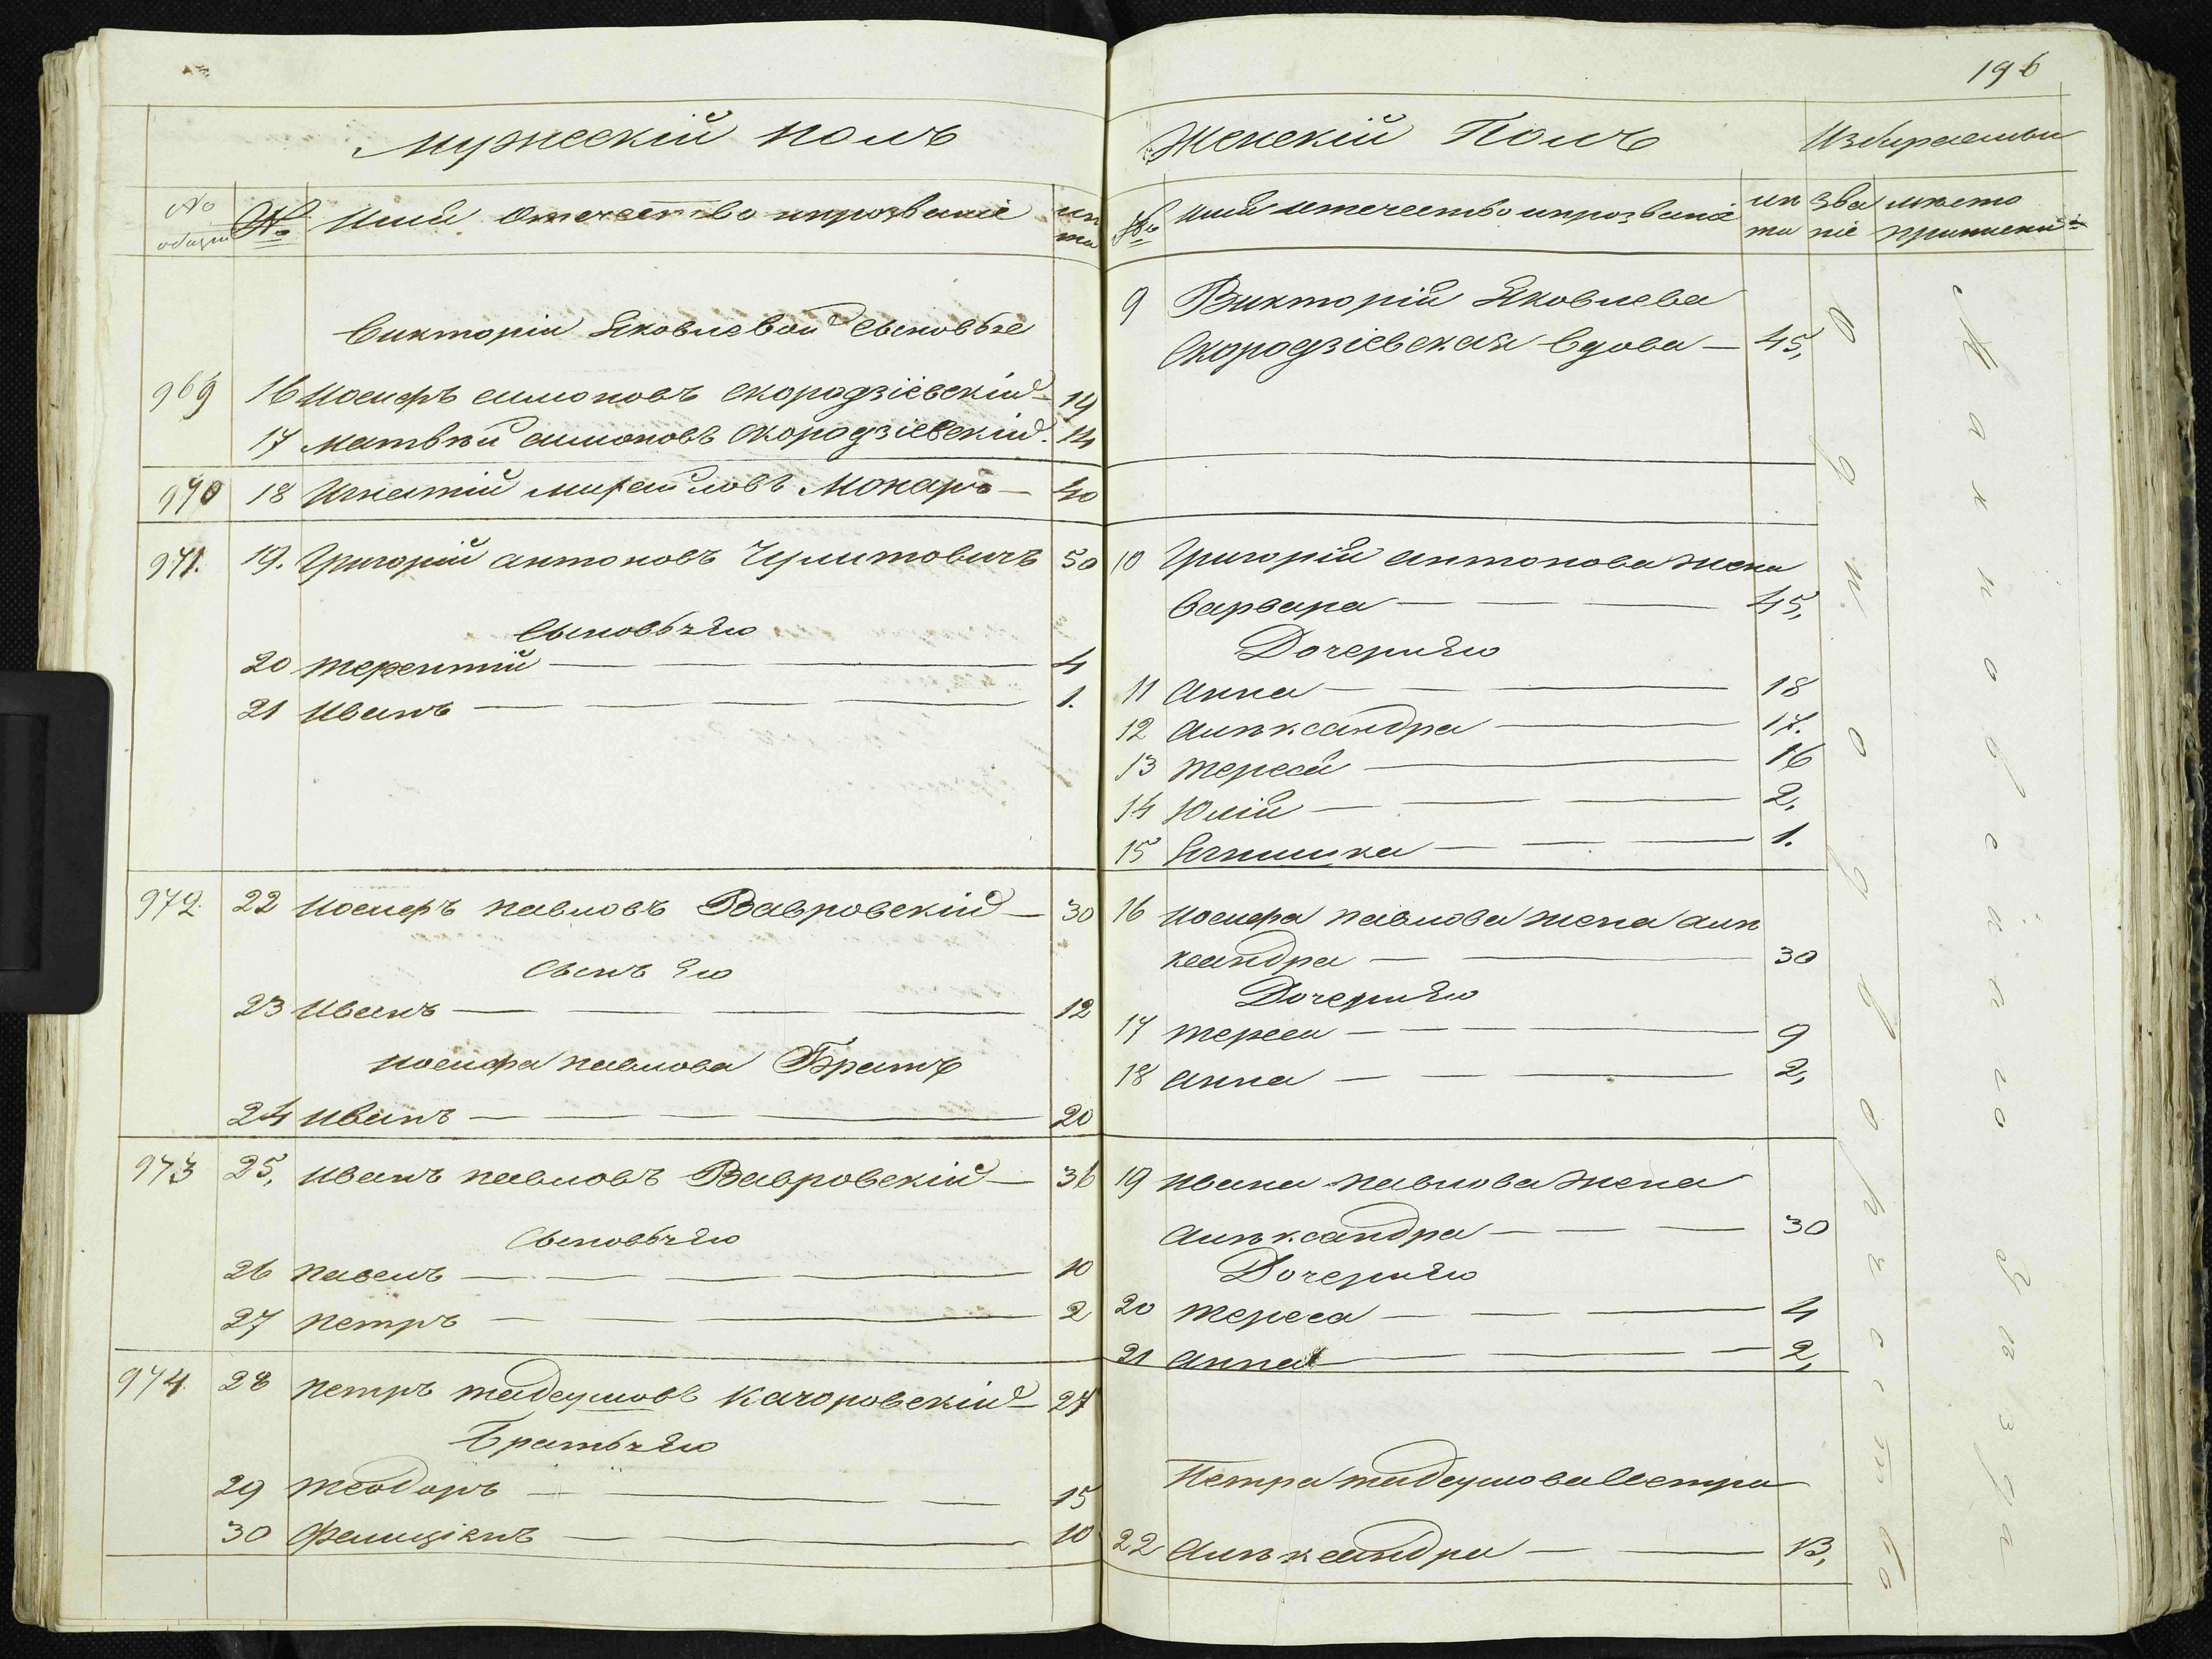 196
Мужескій полъ
№ общій № Имя Отечество и прозваніе лѣта
Викторіи Яковлевой сыновья
969 16 Иосифъ симоновъ скородзіевскій — 19
17 Матвѣй симоновъ скородзіевскій. 14
970 18 Игнатій михайловъ Мокаръ — 40
971. 19. Григорій антоновъ 50
Сыновья Его
20 терентій — 4
21 Иванъ — 1.
972. 22 Иосифъ павловъ Вавровскій — 30
Сынъ Его
23 Иванъ — 12
Иосифа павлова Братъ
24 Иванъ — 20
973 25, Иванъ павловъ Вавровскій — 36
Сыновья Его
26 павелъ — 10
27 петръ — 2
974. 28 петръ тадеушовъ Качоровскій — 27
Братья Его
29 теодоръ — 15
30 Фелиціянъ — 10
Женскій Полъ
№ Имя и отечество и прозваніе лѣта званіе мѣсто приписки
9 Викторія Яковлева
Скородзіевская вдова — 45,
10 Григорія антонова жена
варвара — 45,
Дочери Его
11 Анна — 18
12 Алѣксандра — 17.
13 тереса — 16
14 Юлія — 2,
15 — 1.
16 Иосифа павлова жена алѣ
ксандра — 30
Дочери Его
17 тереса — 9
18 анна — 2,
19 Ивана павлова жена
Алѣксандра — 30
Дочери Его
20 тереса — 4
21 анна — 2,
Петра тадеушова Сестра
22 Алѣксандра — 13,
Однодворчество
уѣзда